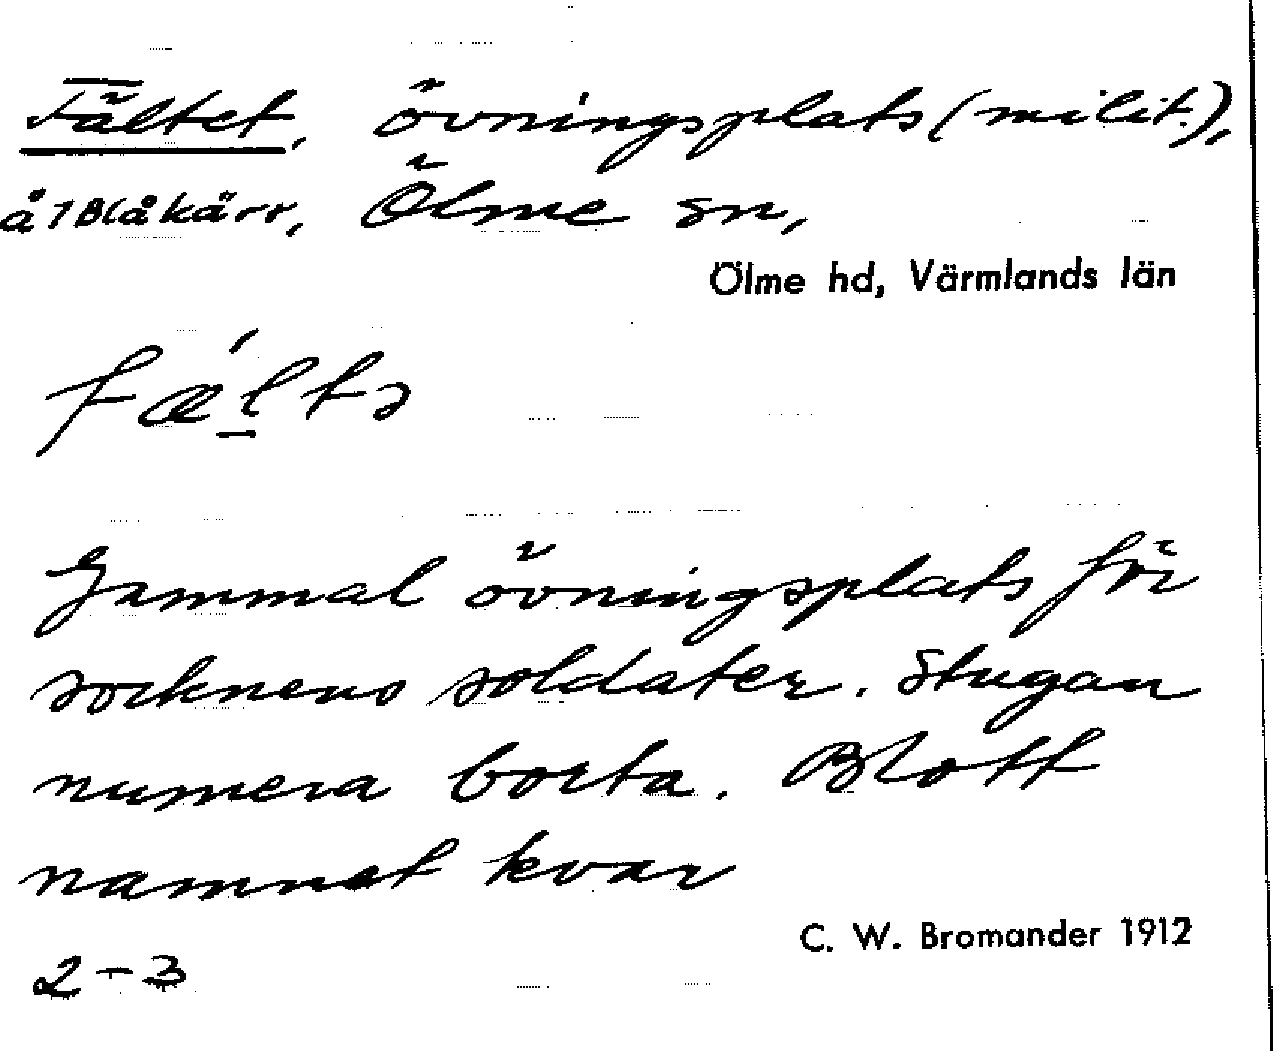 Fältet, övningsplats (milit.),
å 7 Blåkärr, Ölme sn,
Ölme hd, Värmlands län
fæ̀lta
Gammal övningsplats för
socknens soldater. Stugan
numera borta. Blott
namnet kvar
C. W. Bromander 1912
2-3